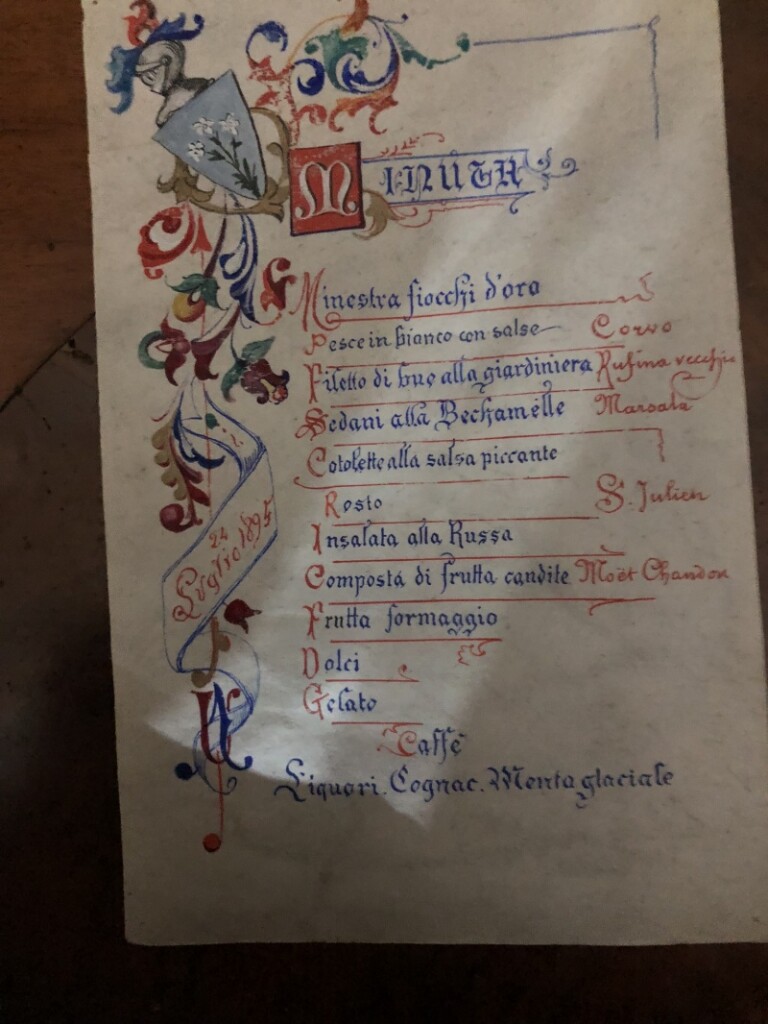 MINUTA
Minestra fiocchi d'oro
Pesce in bianco con salse Corvo
Filetto di bue alla giardiniera Rufina vecchio
Sedani alla Bechamelle Marsala
Cotolette alla salsa piccante
Rosto S. Julien
Insalata alla Russa
Composta di frutta candite Moët Chandon
Frutta formaggio
Dolci
Gelato
Caffè
Liquori. Cognac. Menta glaciale
24
Luglio 1895